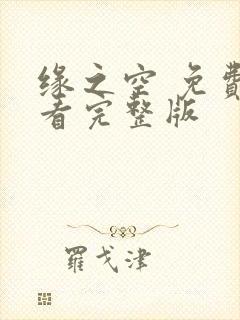 缘之空 免費
看完整版
羅戈津